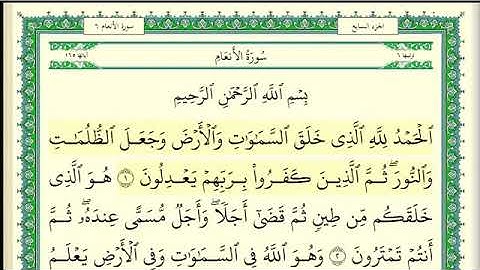 الجزء السابع
سورة الأنعام ٦
ترتيبها ٦
سُورَةُ الأَنعَامِ
آياتها ١٦٥
بِسْمِ ٱللَّهِ ٱلرَّحْمَٰنِ ٱلرَّحِيمِ
ٱلْحَمْدُ لِلَّهِ ٱلَّذِى خَلَقَ ٱلسَّمَٰوَٰتِ وَٱلْأَرْضَ وَجَعَلَ ٱلظُّلُمَٰتِ
وَٱلنُّورَ ۖ ثُمَّ ٱلَّذِينَ كَفَرُوا۟ بِرَبِّهِمْ يَعْدِلُونَ ١ هُوَ ٱلَّذِى
خَلَقَكُم مِّن طِينٍ ثُمَّ قَضَىٰٓ أَجَلًا ۖ وَأَجَلٌ مُّسَمًّى عِندَهُۥ ۖ ثُمَّ
أَنتُمْ تَمْتَرُونَ ٢ وَهُوَ ٱللَّهُ فِى ٱلسَّمَٰوَٰتِ وَفِى ٱلْأَرْضِ يَعْلَمُ